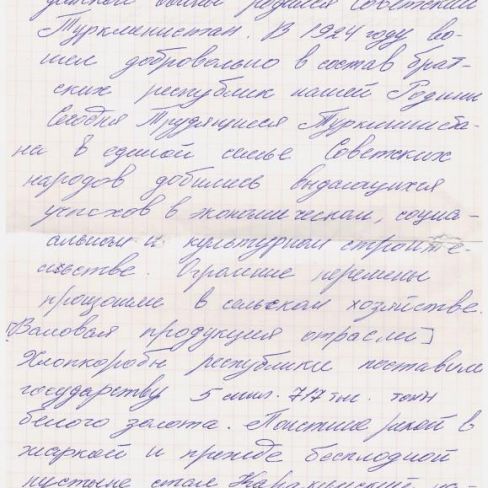 данской войны родился Советский
Туркменистан. В 1924 году во-
шел добровольно в состав брат-
ских республик нашей Родины
Сегодня Трудящиеся Туркмениста-
на в единой семье Советских
народов добились выдающихся
успехов в экономическом, социа-
льном и культурном строите-
льстве. Огромные перемены
произошли в сельском хозяйстве.
[Валовая продукция отрасли]
Хлопкоробы республики поставили
государству 5 мил. 717 тыс. тонн
белого золота. Поистине рекой в
жаркой и прежде бесплодной
пустыне стал Каракумский ка-